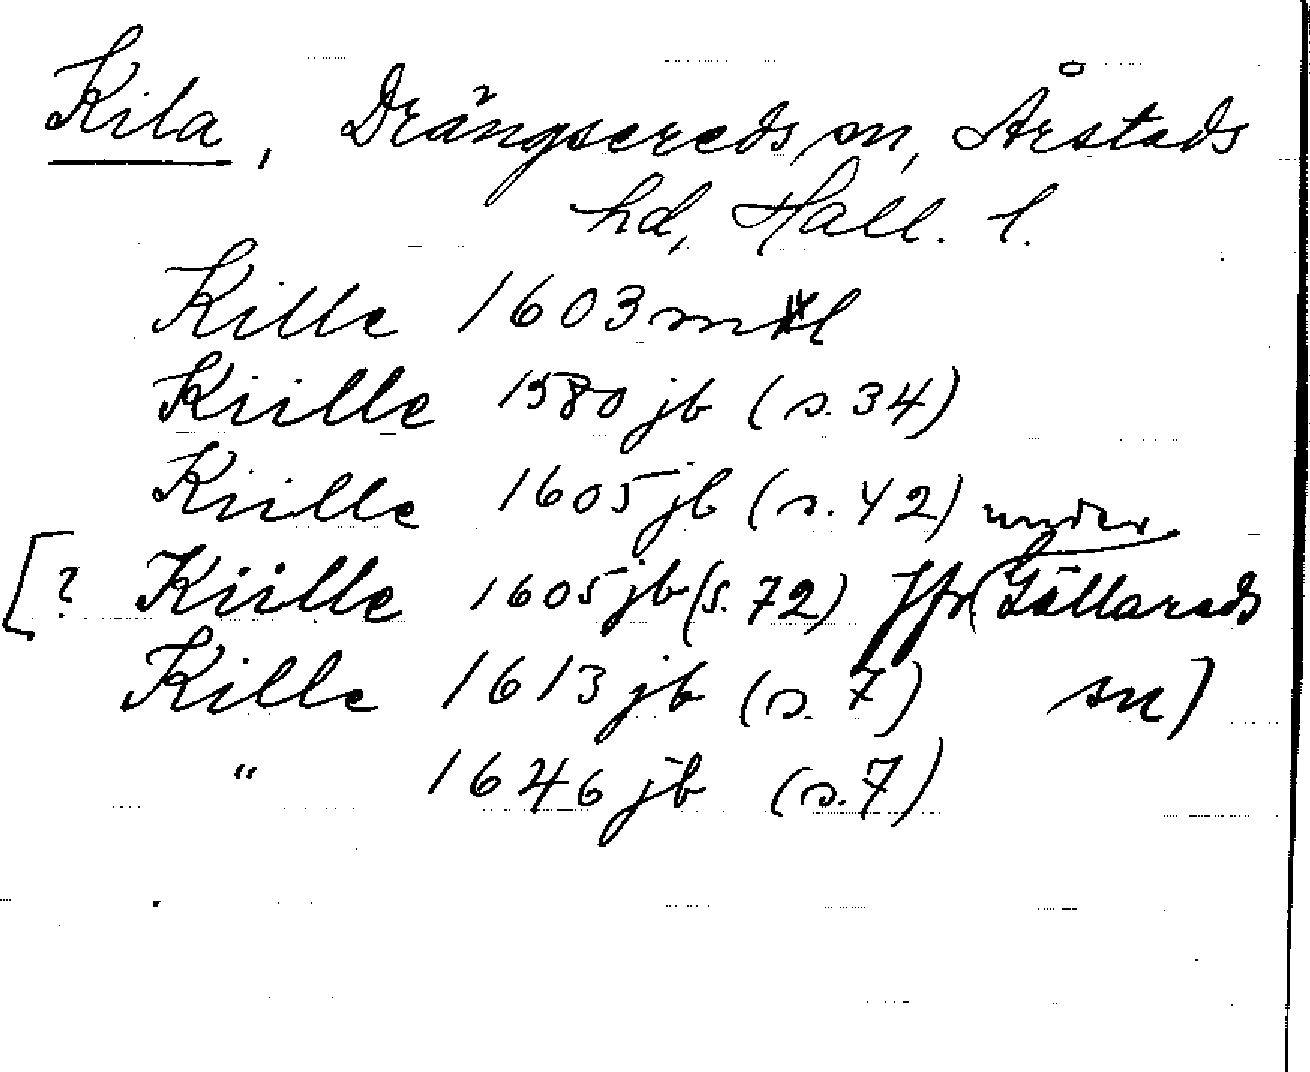 Kila, Drängsereds sn, Årstads
hd, Hall. l.
Kille 1603 mtl
Kiille 1580 jb (s. 34)
Kiille 1605 jb (s. 42) under
[? Kiille 1605 jb (s. 72) Jfr (Gällareds
Kille 1613 jb (s. 7) sn)
" 1646 jb (s. 7)